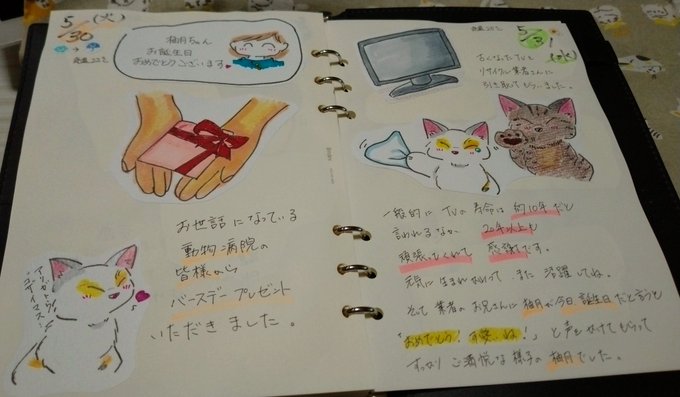 5/30 (火)
柚月ちゃん
お誕生日
おめでとうございます
お世話になっている
動物病院の
皆様から
バースデープレゼント
いただきました。
アリガトウ
ゴザイマス
5/31 (水)
古くなったTVを
リサイクル業者さんに
引き取ってもらいました。
一般的にTVの寿命は約10年だと
言われるなか 20年以上も
頑張ってくれて 感謝です。
元気に生まれかわって また 活躍してね。
そして 業者のお兄さんに 柚月が今日誕生日だと言うと
「おめでとう!可愛いね!」と声をかけてもらって
すっかりご満悦な様子の柚月でした。